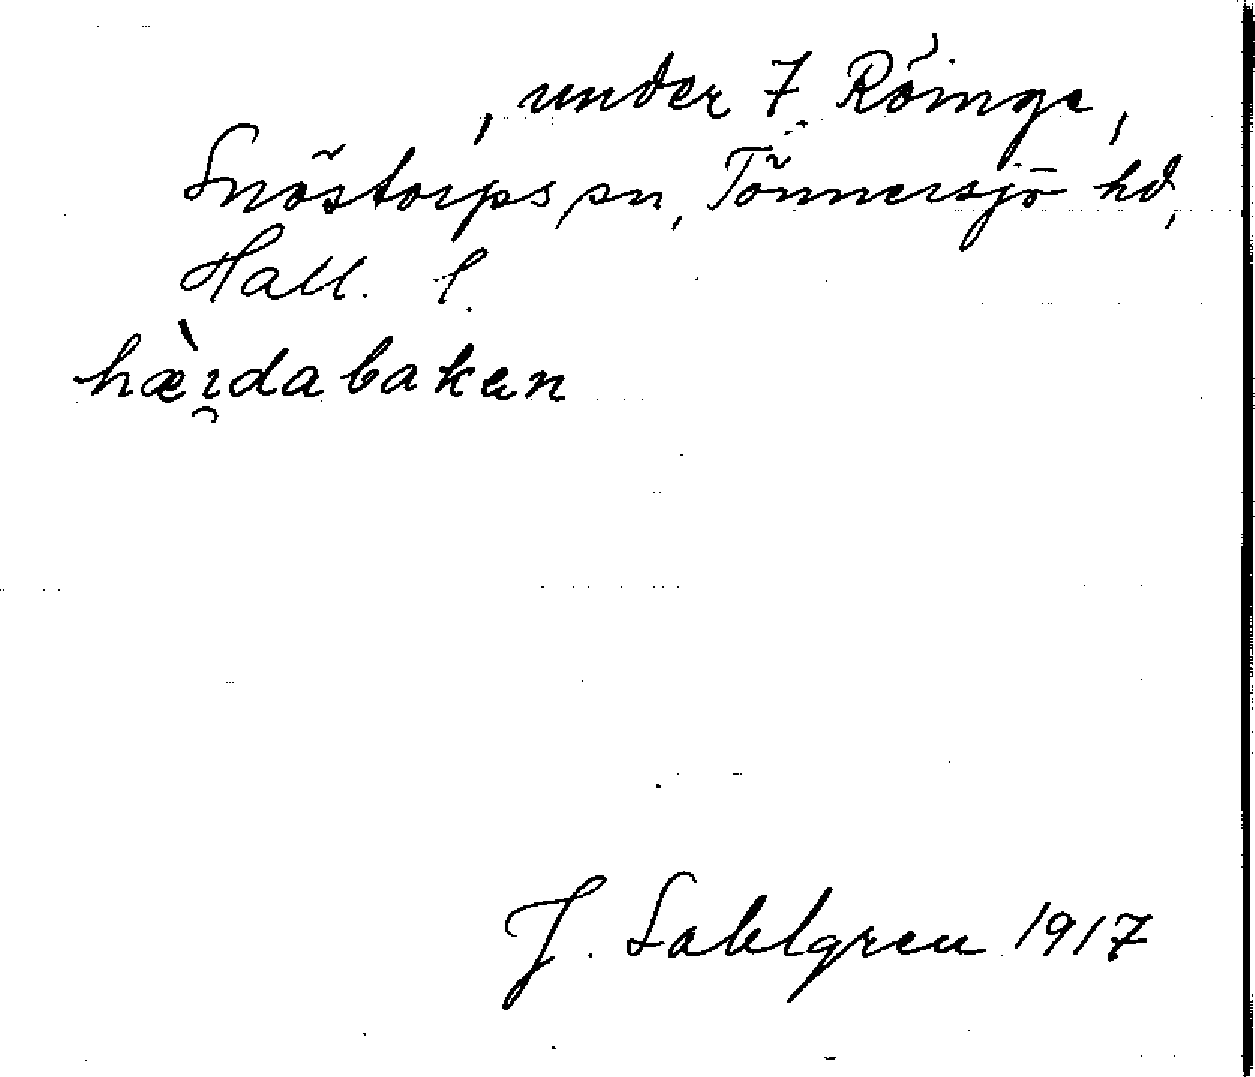 , under 7 Röinge,
Snöstorps sn, Tönnersjö hd,
Hall. l.
hæ̀ɪ̯dabakan
J. Sahlgren 1917